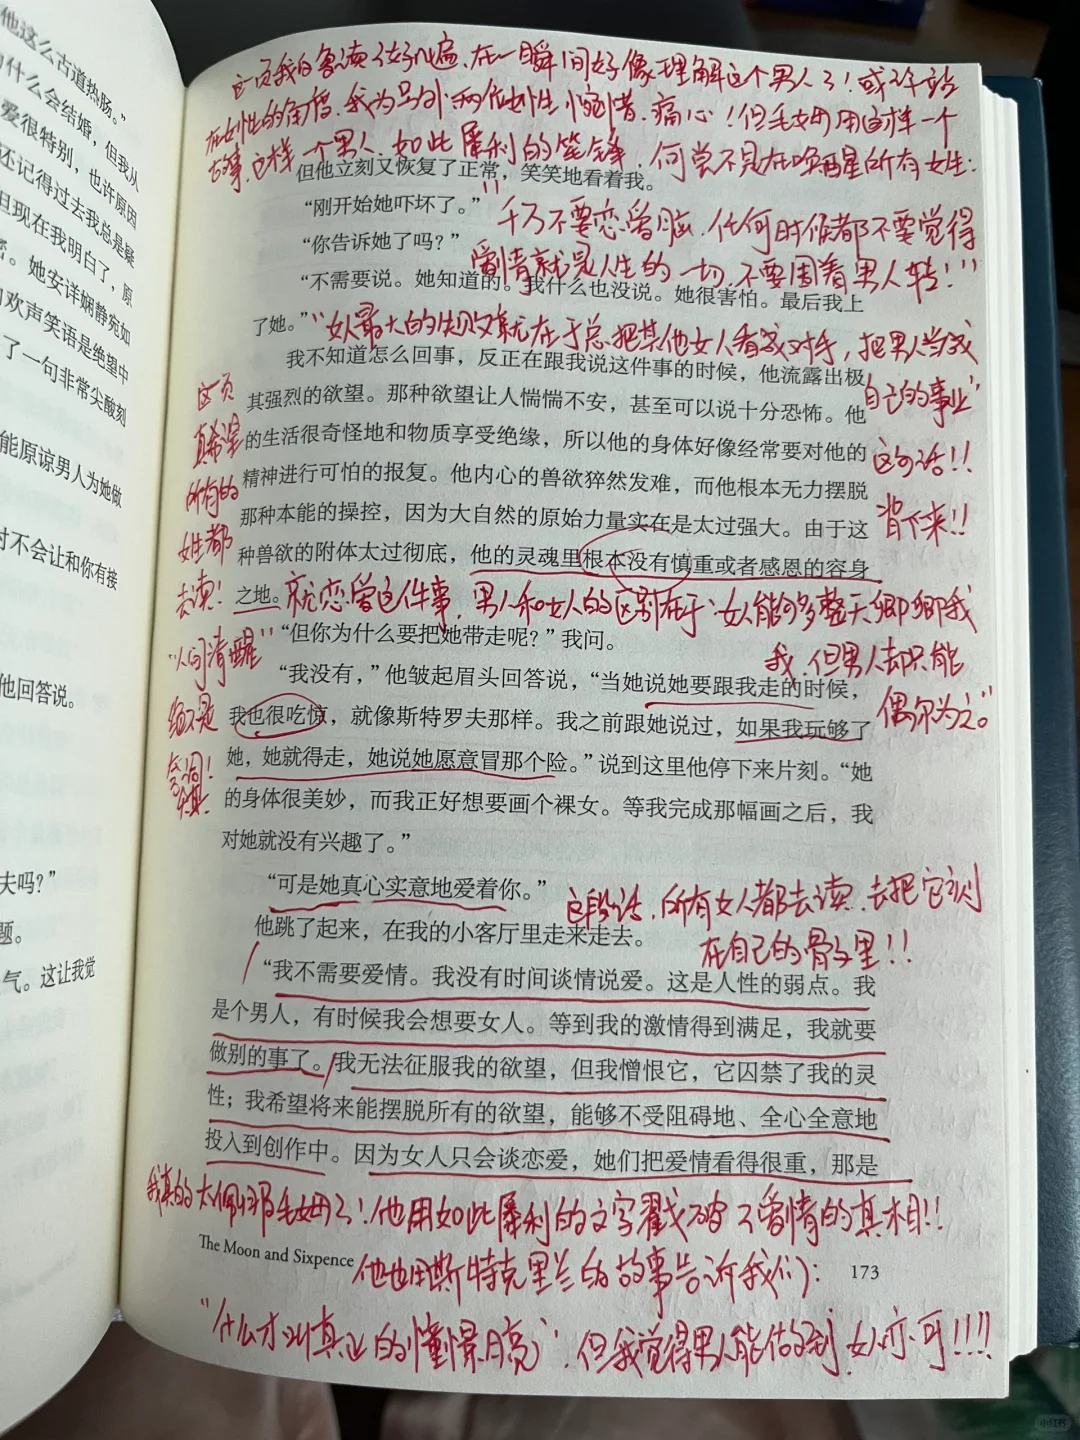 他这么古道热肠。”
为什么会结婚，但我从
爱很特别，也许原因
还记得过去我总是疑
但现在我明白了，原
密。她安详娴静宛如
欢声笑语是绝望中
了一句非常尖酸刻
能原谅男人为她做
对不会让和你有接
他回答说。
夫吗？”
题。
气。这让我觉
这一页我的鲁读了好几遍、在一瞬间好像理解这个男人了！或许站
在女性的角度，我为马外两位女性惋惜、痛心！但毛姆用这样一个
故事、这样一个男人、如此犀利的笔锋、何尝不是在唤醒所有女性：
但他立刻又恢复了正常，笑笑地看着我。
“刚开始她吓坏了。”
“千万不要恋爱脑、任何时候都不要觉得
“你告诉她了吗？”
爱情就是人生的一切、不要围着男人转！”
“不需要说。她知道的。我什么也没说。她很害怕。最后我上
了她。”
“女人最大的失败就在于总把其他女人看成对手，把男人当成
自己的事业”
这句话！！
背下来！！
我不知道怎么回事，反正在跟我说这件事的时候，他流露出极
其强烈的欲望。那种欲望让人惴惴不安，甚至可以说十分恐怖。他
的生活很奇怪地和物质享受绝缘，所以他的身体好像经常要对他的
精神进行可怕的报复。他内心的兽欲猝然发难，而他根本无力摆脱
那种本能的操控，因为大自然的原始力量实在是太过强大。由于这
种兽欲的附体太过彻底，他的灵魂里根本没有慎重或者感恩的容身
之地。
这页
真希望
所有的
女姓都
去读！
“人间清醒”
绝不是
空洞！
就恋爱这件事，男人和女人的区别在于：女人能够整天卿卿我
我、但男人却只能
偶尔为之。”
“但你为什么要把她带走呢？”我问。
“我没有，”他皱起眉头回答说，“当她说她要跟我走的时候，
我也很吃惊，就像斯特罗夫那样。我之前跟她说过，如果我玩够了
她，她就得走，她说她愿意冒那个险。”说到这里他停下来片刻。“她
的身体很美妙，而我正好想要画个裸女。等我完成那幅画之后，我
对她就没有兴趣了。”
“可是她真心实意地爱着你。”
这段话、所有女人都去读、去把它刻
在自己的骨子里！！
他跳了起来，在我的小客厅里走来走去。
“我不需要爱情。我没有时间谈情说爱。这是人性的弱点。我
是个男人，有时候我会想要女人。等到我的激情得到满足，我就要
做别的事了。我无法征服我的欲望，但我憎恨它，它囚禁了我的灵
性；我希望将来能摆脱所有的欲望，能够不受阻碍地、全心全意地
投入到创作中。因为女人只会谈恋爱，她们把爱情看得很重，那是
我真的太佩服毛姆了！他用如此犀利的文字戳破了爱情的真相！！
The Moon and Sixpence
173
他也用斯特克里兰的故事告诉我们：
“什么才叫真正的懂憬月亮”，但我觉得男人能做到，女人亦可！！！！
小红书